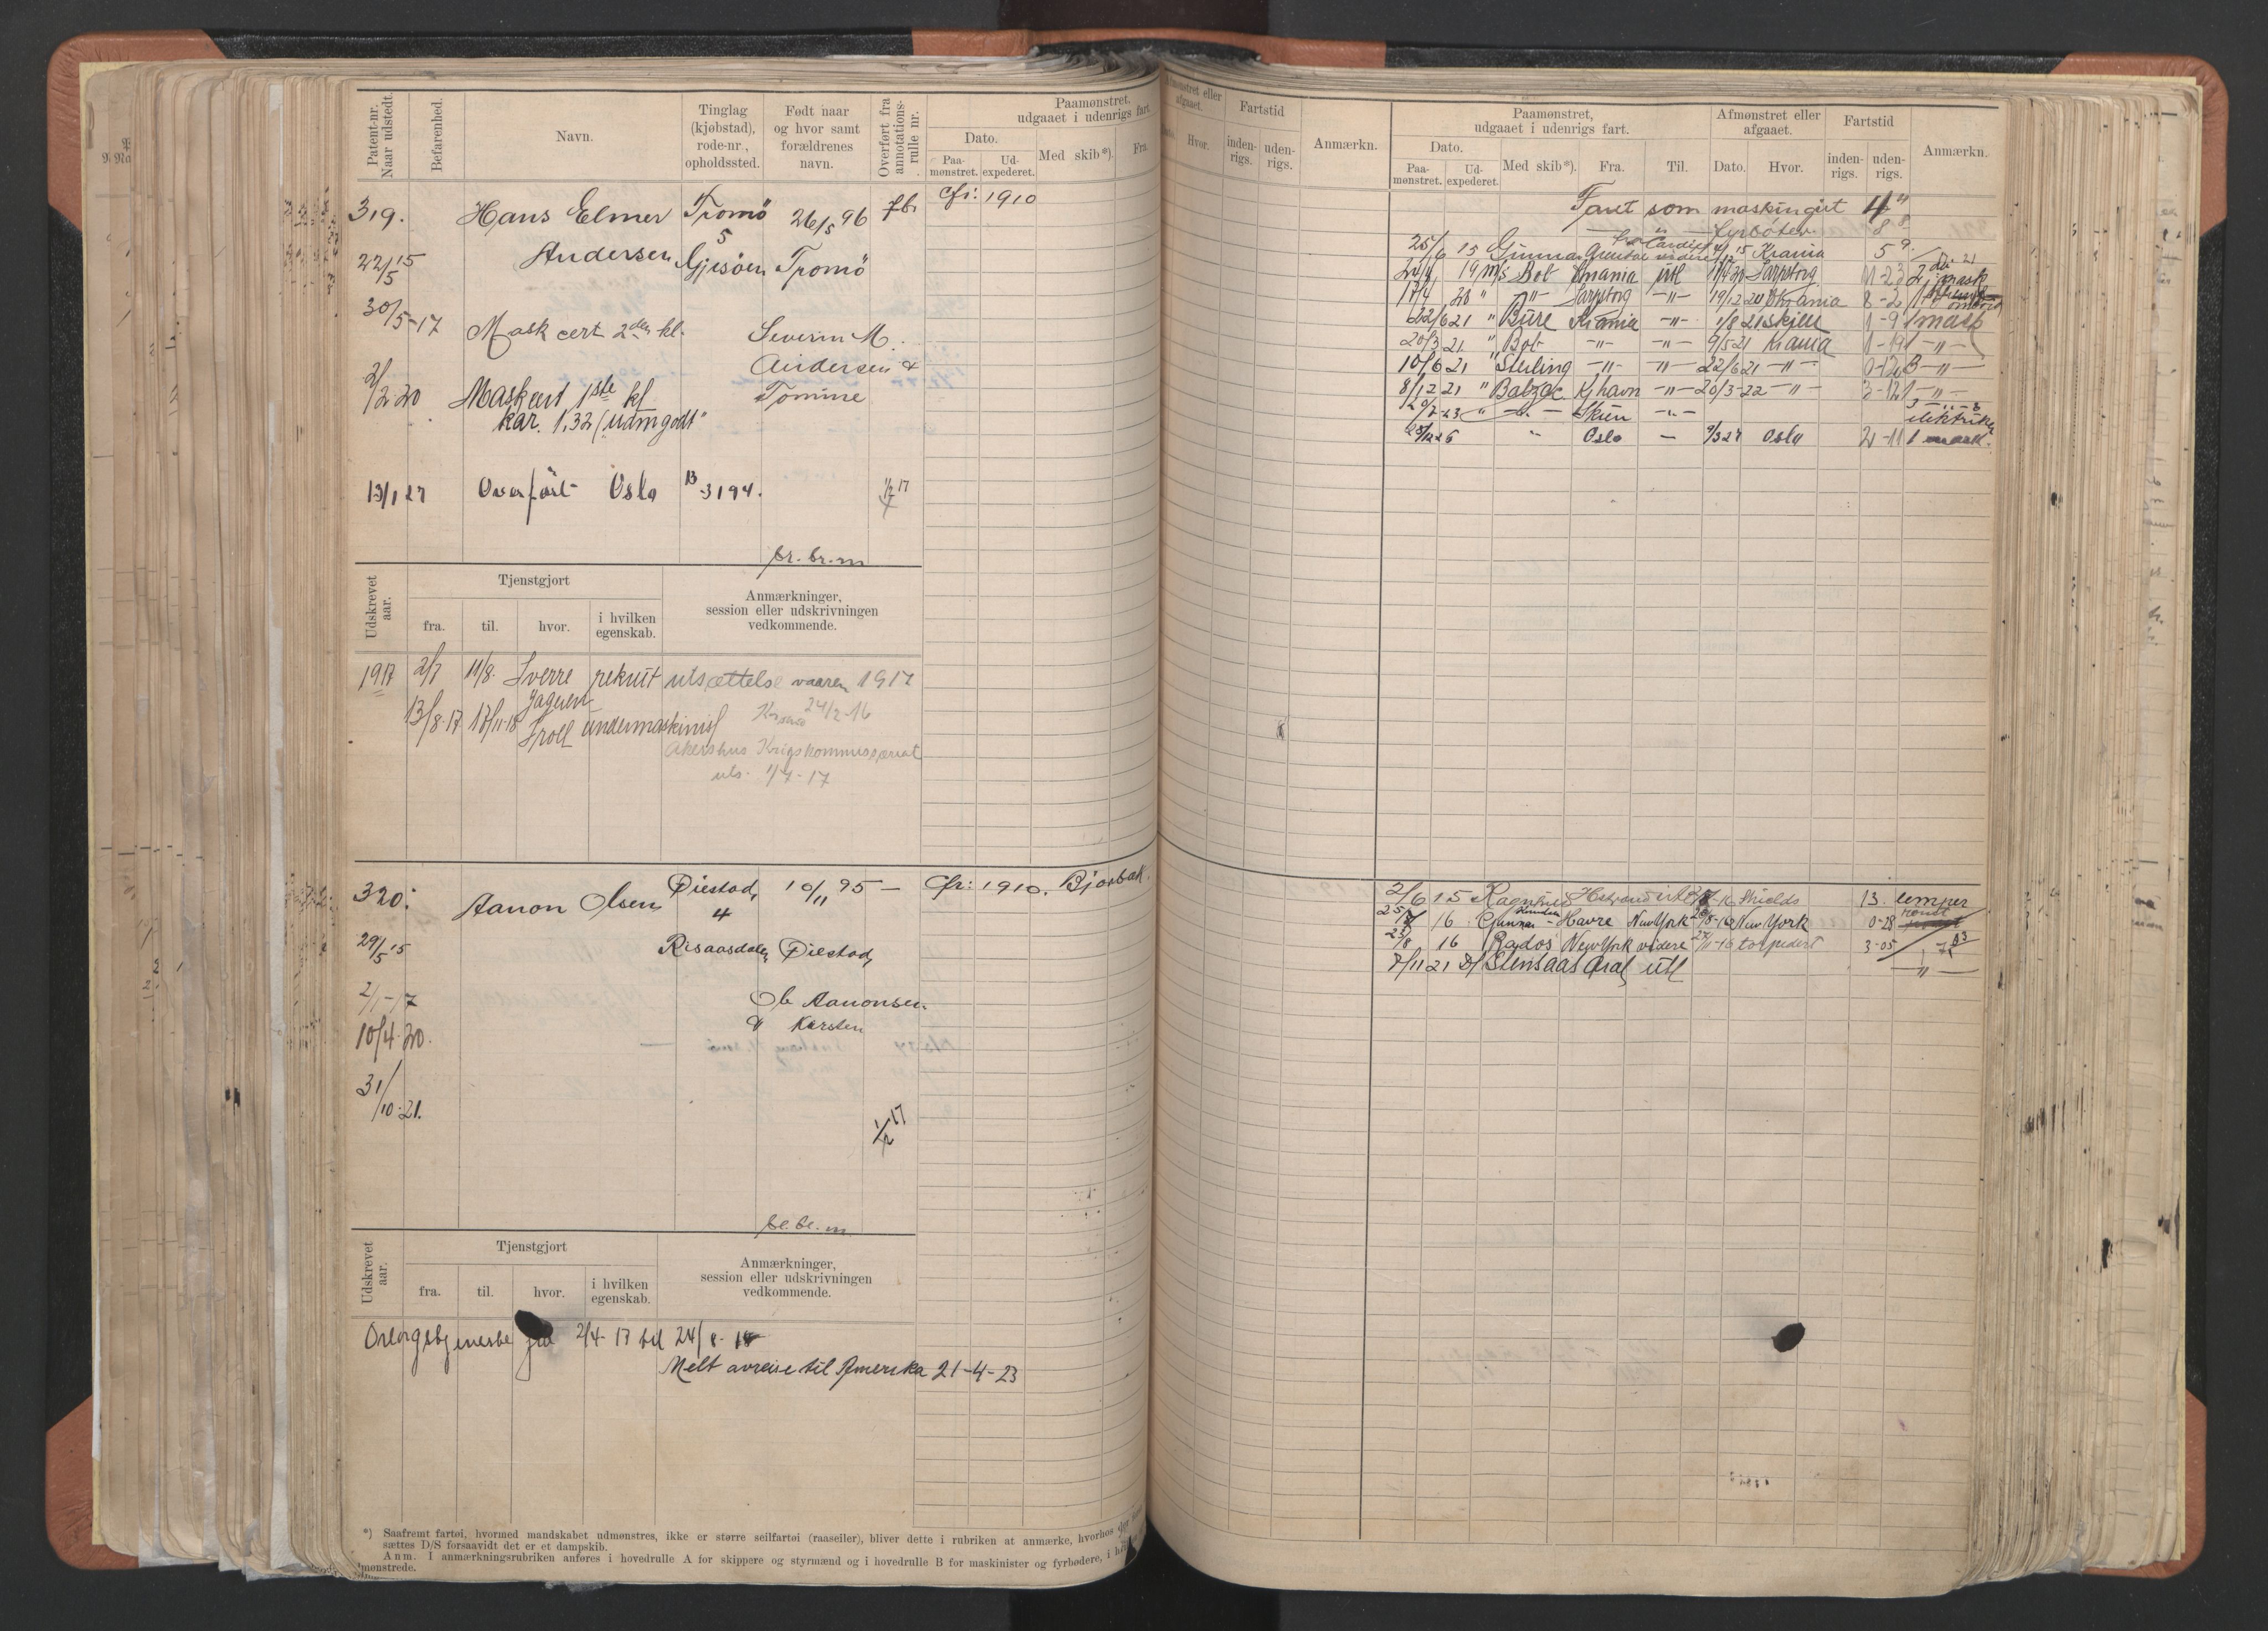 Patent-nr. Naar udstedt.
Befarenhed.
Navn.
Tinglag (kjøbstad), rode-nr., opholdssted.
Født naar og hvor samt forældrenes navn.
Overført fra annotations-rulle nr.
Paamønstret, udgaaet i udenrigs fart
Dato.
Paa-mønstret.
Ud-expederet.
Med skib*).
Fra.
319.
Hans Elmer Tromö 26/5 96
cfr: 1910
Andersen 5
22/5 15
Gjesöen Tromö
30/5-17
Mask cert 2den kl.
Severin M.
Andersen &
2/2 20
Mask cert 1ste kl
Tomine
kar. 1,32 ("udm godt"
13/1 27 Overført Oslo B 3194.
1/7 17
br. br. m
Udskrevet aar.
Tjenstgjort
fra.
til.
hvor.
i hvilken egenskab.
Anmærkninger, session eller udskrivningen vedkommende.
1917 2/7 11/8. Sverre rekrut utsættelse vaaren 1917
13/8-17 17/11-18
Troll undermaskinist
24/2-16
Akershus Krigskommissariat
uts. 1/7-17
320. Aanon Olsen Øiestad, 10/11 95 — Cfr: 1910. Bjorbæk.
4
29/5 15
Risaasdalen Øiestad,
2/1-17
Ole Aanonsen
& Karsten
10/4-20.
31/10-21.
1/7 17
be. be. m
Udskrevet aar.
Tjenstgjort
fra.
til.
hvor.
i hvilken egenskab.
Anmærkninger, session eller udskrivningen vedkommende.
Orlogstjeneste fra 2/4-17 til 24/8-18
Melt avreise til Amerika 21-4-23
*) Saafremt fartøi, hvormed mandskabet udmønstres, ikke er større seilfartøi (raaseiler), bliver dette i rubriken at anmærke, hvorhos
sættes D/S forsaavidt det er et dampskib.
Anm. I anmærkningsrubriken anføres i hovedrulle A for skippere og styrmænd og i hovedrulle B for maskinister og fyrbødere, i
mønstrede.
Afmønstret eller afgaaet.
Hvor.
Fartstid
inden-rigs.
uden-rigs.
Anmærkn.
Paamønstret, udgaaet i udenrigs fart.
Dato.
Paa-mønstret.
Ud-expederet.
Med skib*).
Fra.
Til.
Afmønstret eller afgaaet.
Dato.
Hvor.
Fartstid
inden-rigs.
uden-rigs.
Anmærkn.
Faret som maskingut 4
— " — fyrböter 8
25/6 15 Gunnar Cardiff Krania 5
24/4 19 M/S Bob Krania utl Sarpsborg
17/4 20 " — " — Sarpsborg — " — 19/12 20 Krania
22/6 21 " Bure Krania — " — 1/8 21 Skjell 1-9 1 mask
20/3 21 " Bob — " — — " — 9/5 21 Krania 1-19 1 — " —
10/6 21 " Sterling — " — — " — 22/6 21 — " — 0-12 3 — " —
8/12 21 " Balzac Kjhavn — " — 20/3-22 — " — 3-12 1 — " —
Skien — " —
Oslo — 9/3 27 Oslo 2-11 1 mask.
2/6 15 Shields 13. lemper
16 Gunnar - Havre New York New York 0-28
23/8 16 Rados New York videre torpedert 3-05
7/11 21 D/ Stensaas Aral utl — " —